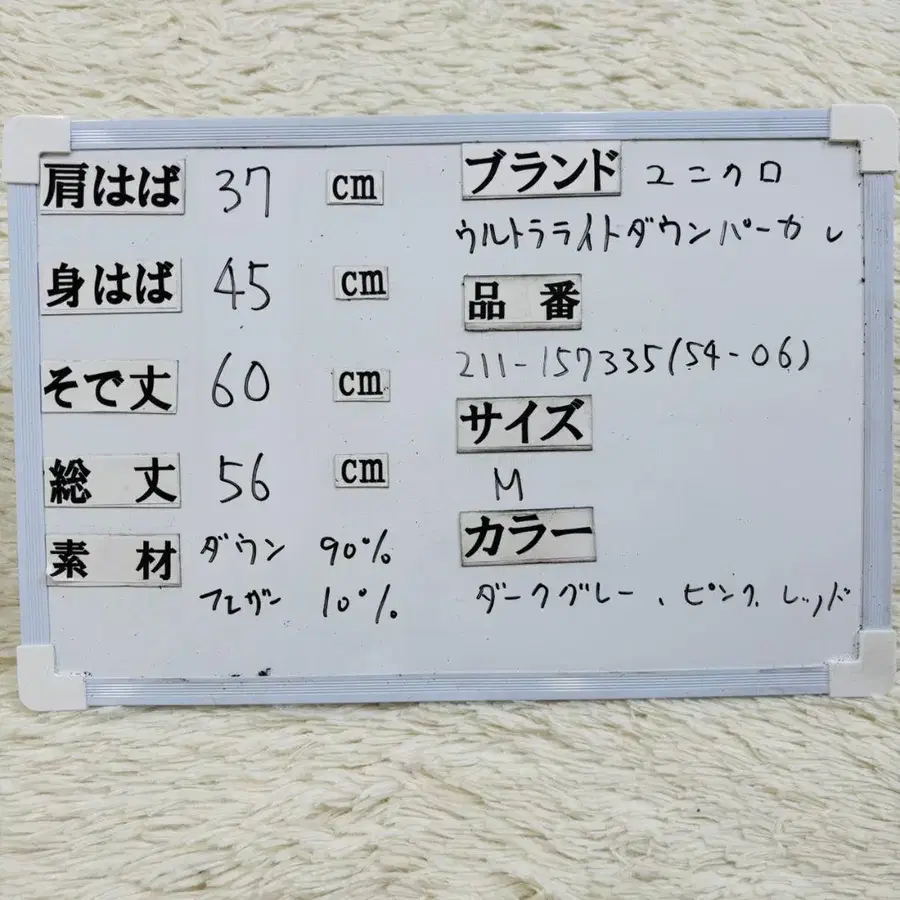 肩はば 37 cm
身はば 45 cm
そで丈 60 cm
総丈 56 cm
素材 ダウン 90%
フェザー 10%
ブランド ユニクロ
ウルトラライトダウンパーカ レ
品番
211-157335(54-06)
サイズ
M
カラー
ダークグレー、ピンク、レッド